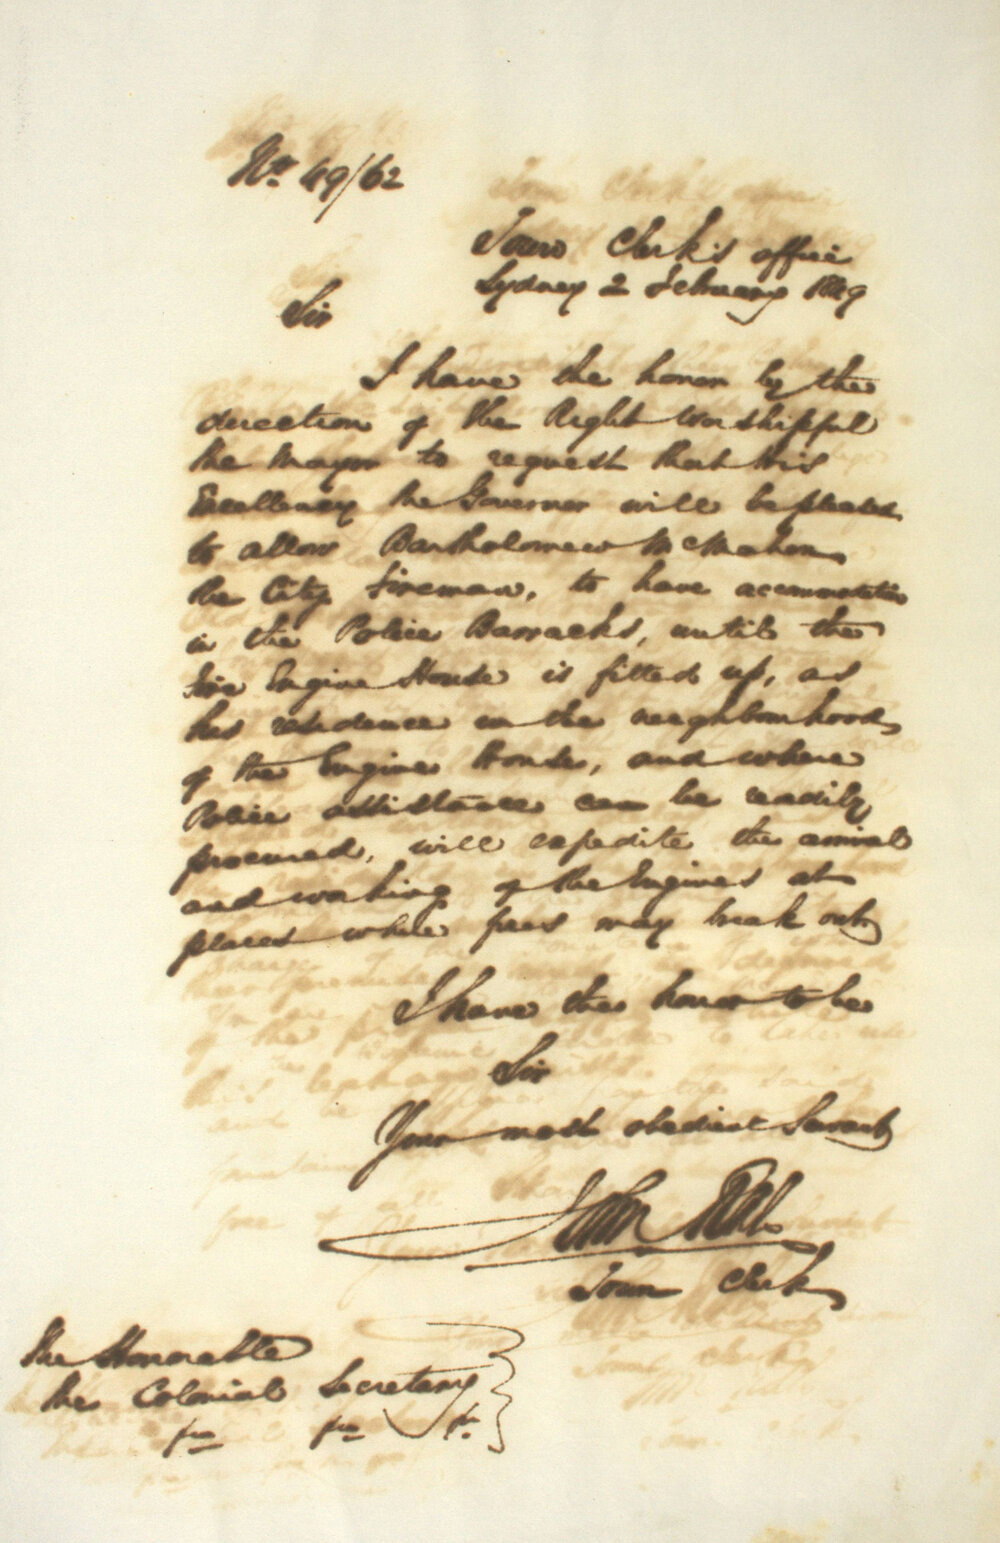 No. 49/62
Town Clerk's office
Sydney 2 February 1849
Sir
I have the honor by the
direction of the Right Worshipful
the Mayor to request that His
Excellency the Governor will be pleased
to allow Bartholomew McMahon
the City Fireman, to have accommodation
in the Police Barracks, until the
Fire Engine House is fitted up, as
his residence in the neighbourhood
of the Engine House, and where
Police assistance can be readily
procured, will expedite the arrival
and working of the Engines at
places while fires may break out
I have the honor to be
Sir
Your most obedient Servant
John
Town Clerk
The Honorable
the Colonial Secretary